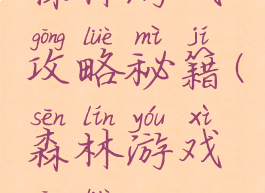 gōng lüè mì jí
攻略秘籍(
sēn lín yóu xì
森林游戏